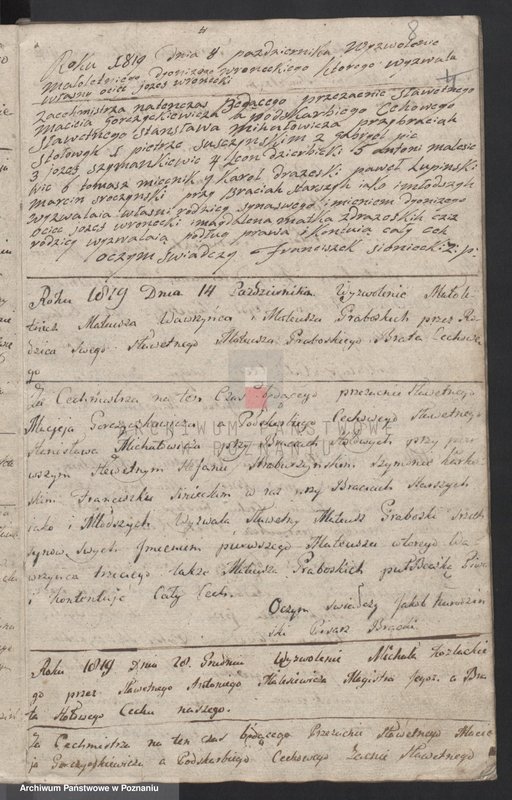 8
Roku 1819 dnia 4 pazdziernika Wyzwolenie
małoletniego dionizego wroneckiego ktorego wyzwala
własny ociec jozef wronecki
zacechmistrza natenczas Będącego przezacnie sławetnego
Macieia Gorczyckiewicza a podskarbiego Cechowego
sławetnego Stanisława Michałowicza przy braciach
Stołowych 1 pietrze suszczynskim 2
3 jozef szymankiewic 4 5 antoni malesie
wic 6 tomasz miecnik 7 karol drazeski paweł Łupinski
marcin sroczynski przy Braciach starszych iako i młodszych
wyzwalaia własni rodzicy synaswego imieniem dyonizego
ociec jozef wronecki imagdalena matka zdrazoskich ciz
rodzicy wyzwalaia podług prawa ikontuią cały cech
oczym swiadczy Franciszek
Roku 1819 Dnia 14 Pazdziernika Wyzwolenie Małole
tnich Mateusza Wawrzyńca i Mateusza Graboskich przez Ro
dzica Swego Sławetnego Mateusza Graboskiego Brata Cechowe
go
Za Cechmistrza na ten Czas będącego przezacnie Sławetnego
Macieja Gorczyczkiewicza Podskarbiego Cechowego Sławetnego
Stanisława Michałowicza przy Braciach Stołowych przy pier
wszym Sławetnym Stefanie Szymonie
skim Franciszku Sinieckim w raz przy Braciach Starszych
jako i Młodszych Wyzwala Sławetny Mateusz Graboski trzech
synow Swych Imieniem pierwszego Mateusza wtorego Wa
wrzynca trzeciego także Mateusza Graboskich puł Beczką Piwa
i kontentuje Cały Cech.
Oczym swiadczy Jakob
ski Pisarz Bracki
ARCHIWUM PAŃSTWOWE
W POZNANIU
Roku 1819 Dnia 28. Grudnia Wyzwolenie Michała Kozlackie
go przez Sławetnego Antoniego Malesiewicza Magistra Jegoz. a Bra
ta Stołowego Cechu naszego.
Za Cechmistrza na ten czas będącego Przezacnie Sławetnego Macie
ja Gorczyczkiewicza a Podskarbiego Cechowego Zacnie Sławetnego
Archiwum Państwowe w Poznaniu